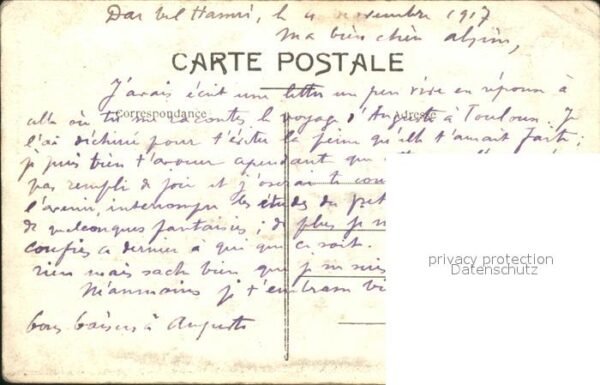 Dar bel Hamri, le 4 novembre 1917
Ma bien chère
CARTE POSTALE
J'avais écrit une lettre un peu vive en réponse à
celle où tu me racontes le voyage d'Auguste à Toulon. Je
Correspondance Adresse
l'ai déchiré pour t'éviter la peine qu'elle t'aurait faite;
je puis bien t'avouer cependant que
pas rempli de joie et j'oserai te
l'avenir, interrompre les études du
de quelconques fantaisies; de plus je
confies ce dernier à qui que ce soit.
rien mais sache bien que je me suis
Néanmoins je t'embrasse
bons baisers à Auguste
privacy protection
Datenschutz